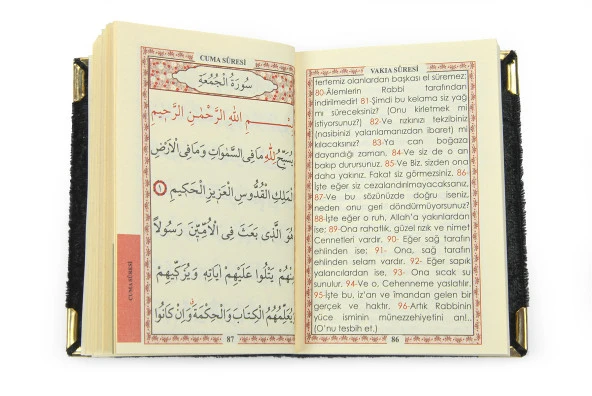 CUMA SÛRESİ
سُورَةُ الْجُمُعَةِ
بِسْمِ اللهِ الرَّحْمٰنِ الرَّحِيمِ
يُسَبِّحُ لِلّٰهِ مَا فِى السَّمٰوَاتِ وَمَا فِى الْاَرْضِ
الْمَلِكِ الْقُدُّوسِ الْعَزِيزِ الْحَكِيمِ ١
هُوَ الَّذِى بَعَثَ فِى الْاُمِّيّنَ رَسُولًا
مِنْهُمْ يَتْلُوا عَلَيْهِمْ اٰيَاتِهِ وَيُزَكّ۪يهِمْ
وَيُعَلِّمُهُمُ الْكِتَابَ وَالْحِكْمَةَ وَاِنْ كَانُوا
87
CUMA SÛRESİ
VAKIA SÛRESİ
tertemiz olanlardan başkası el süremez;
80-Âlemlerin Rabbi tarafından
indirilmedir! 81-Şimdi bu kelama siz yağ
mı süreceksiniz? (Onu kirletmek mi
istiyorsunuz?) 82-Ve rızkınızı tekzibiniz
(nasibinizi yalanlamanızdan ibaret) mi
kılacaksınız? 83-Ya can boğaza
dayandığı zaman, 84-Ve siz de o an
bakıp durursunuz. 85-Ve Biz, sizden ona
daha yakınız. Fakat siz görmezsiniz. 86-
İşte eğer siz cezalandırılmayacaksanız,
87-Ve bu sözünüzde doğru iseniz,
neden onu geri döndürmüyorsunuz?
88-İşte eğer o ruh, Allah'a yakınlardan
ise; 89-Ona rahatlık, güzel rızık ve nimet
Cennetleri vardır. 90- Eğer sağ tarafın
ehlinden ise; 91- Ona, sağ tarafın
ehlinden selam vardır. 92- Eğer sapık
yalancılardan ise, 93- Ona sıcak su
sunulur. 94-Ve o, Cehenneme yaslatılır.
95-İşte bu, iz'an ve îmandan gelen bir
gerçek ve haktır. 96-Artık Rabbinin
yüce isminin münezzehiyetini an!..
(O'nu tesbih et.)
86